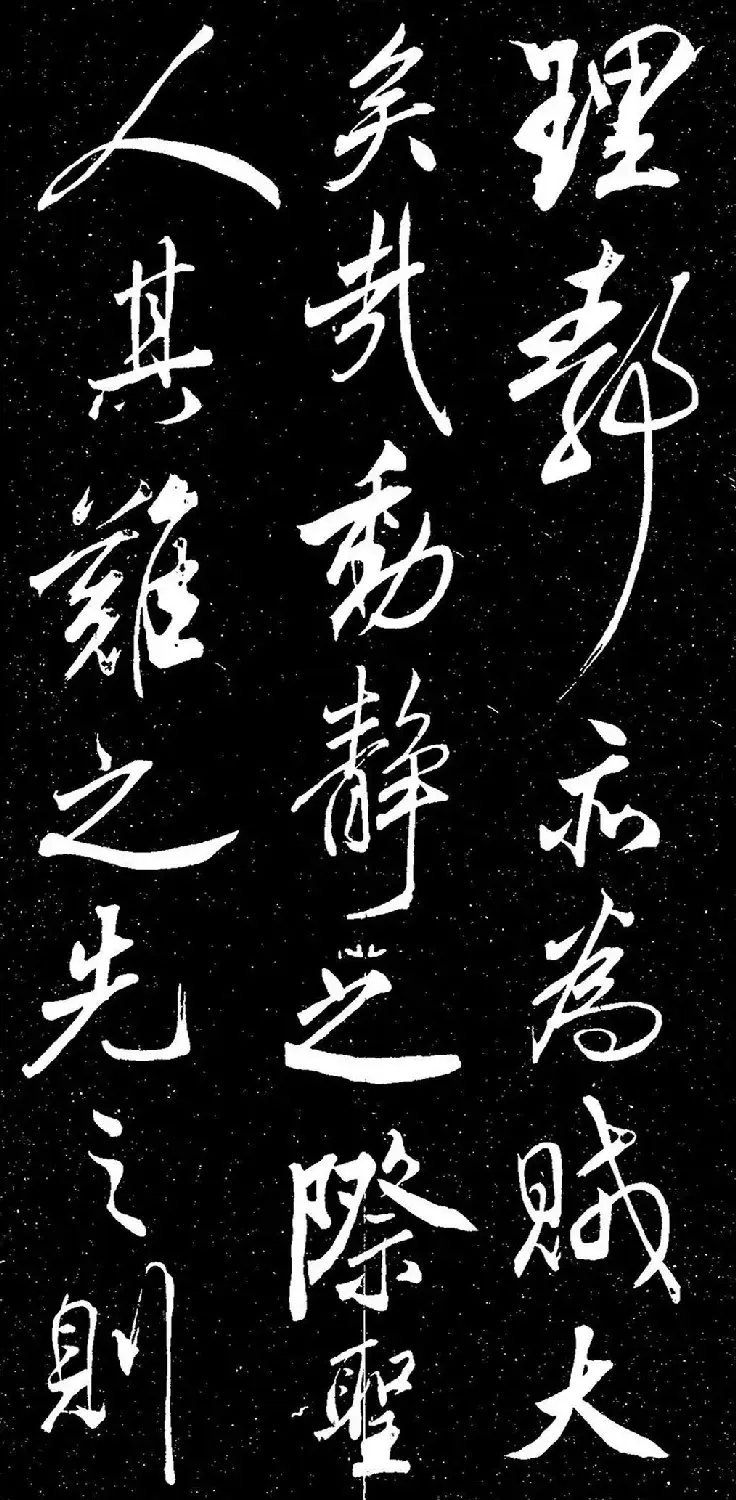 理静亦為賊大
矣哉動静之際聖
人其難之先之則